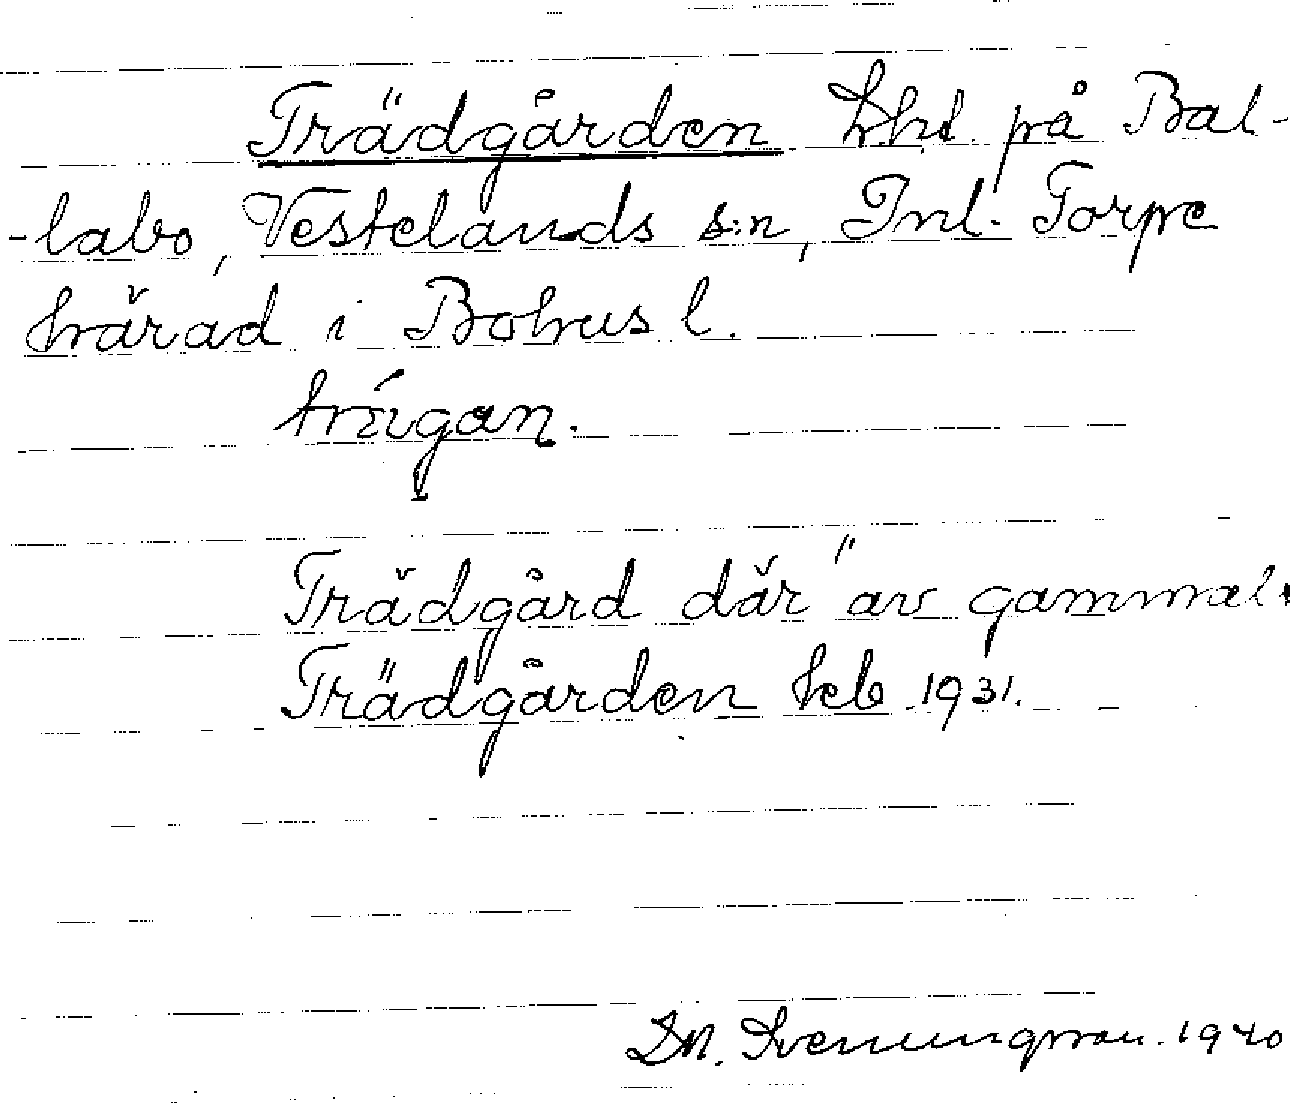 Trädgården lht. på Bal-
-labo, Vestelands s:n, Inl. Torpe
härad i Bohus l.
Trädgård där "av gammalt
Trädgården keb 1931.
Svenungsson. 1940